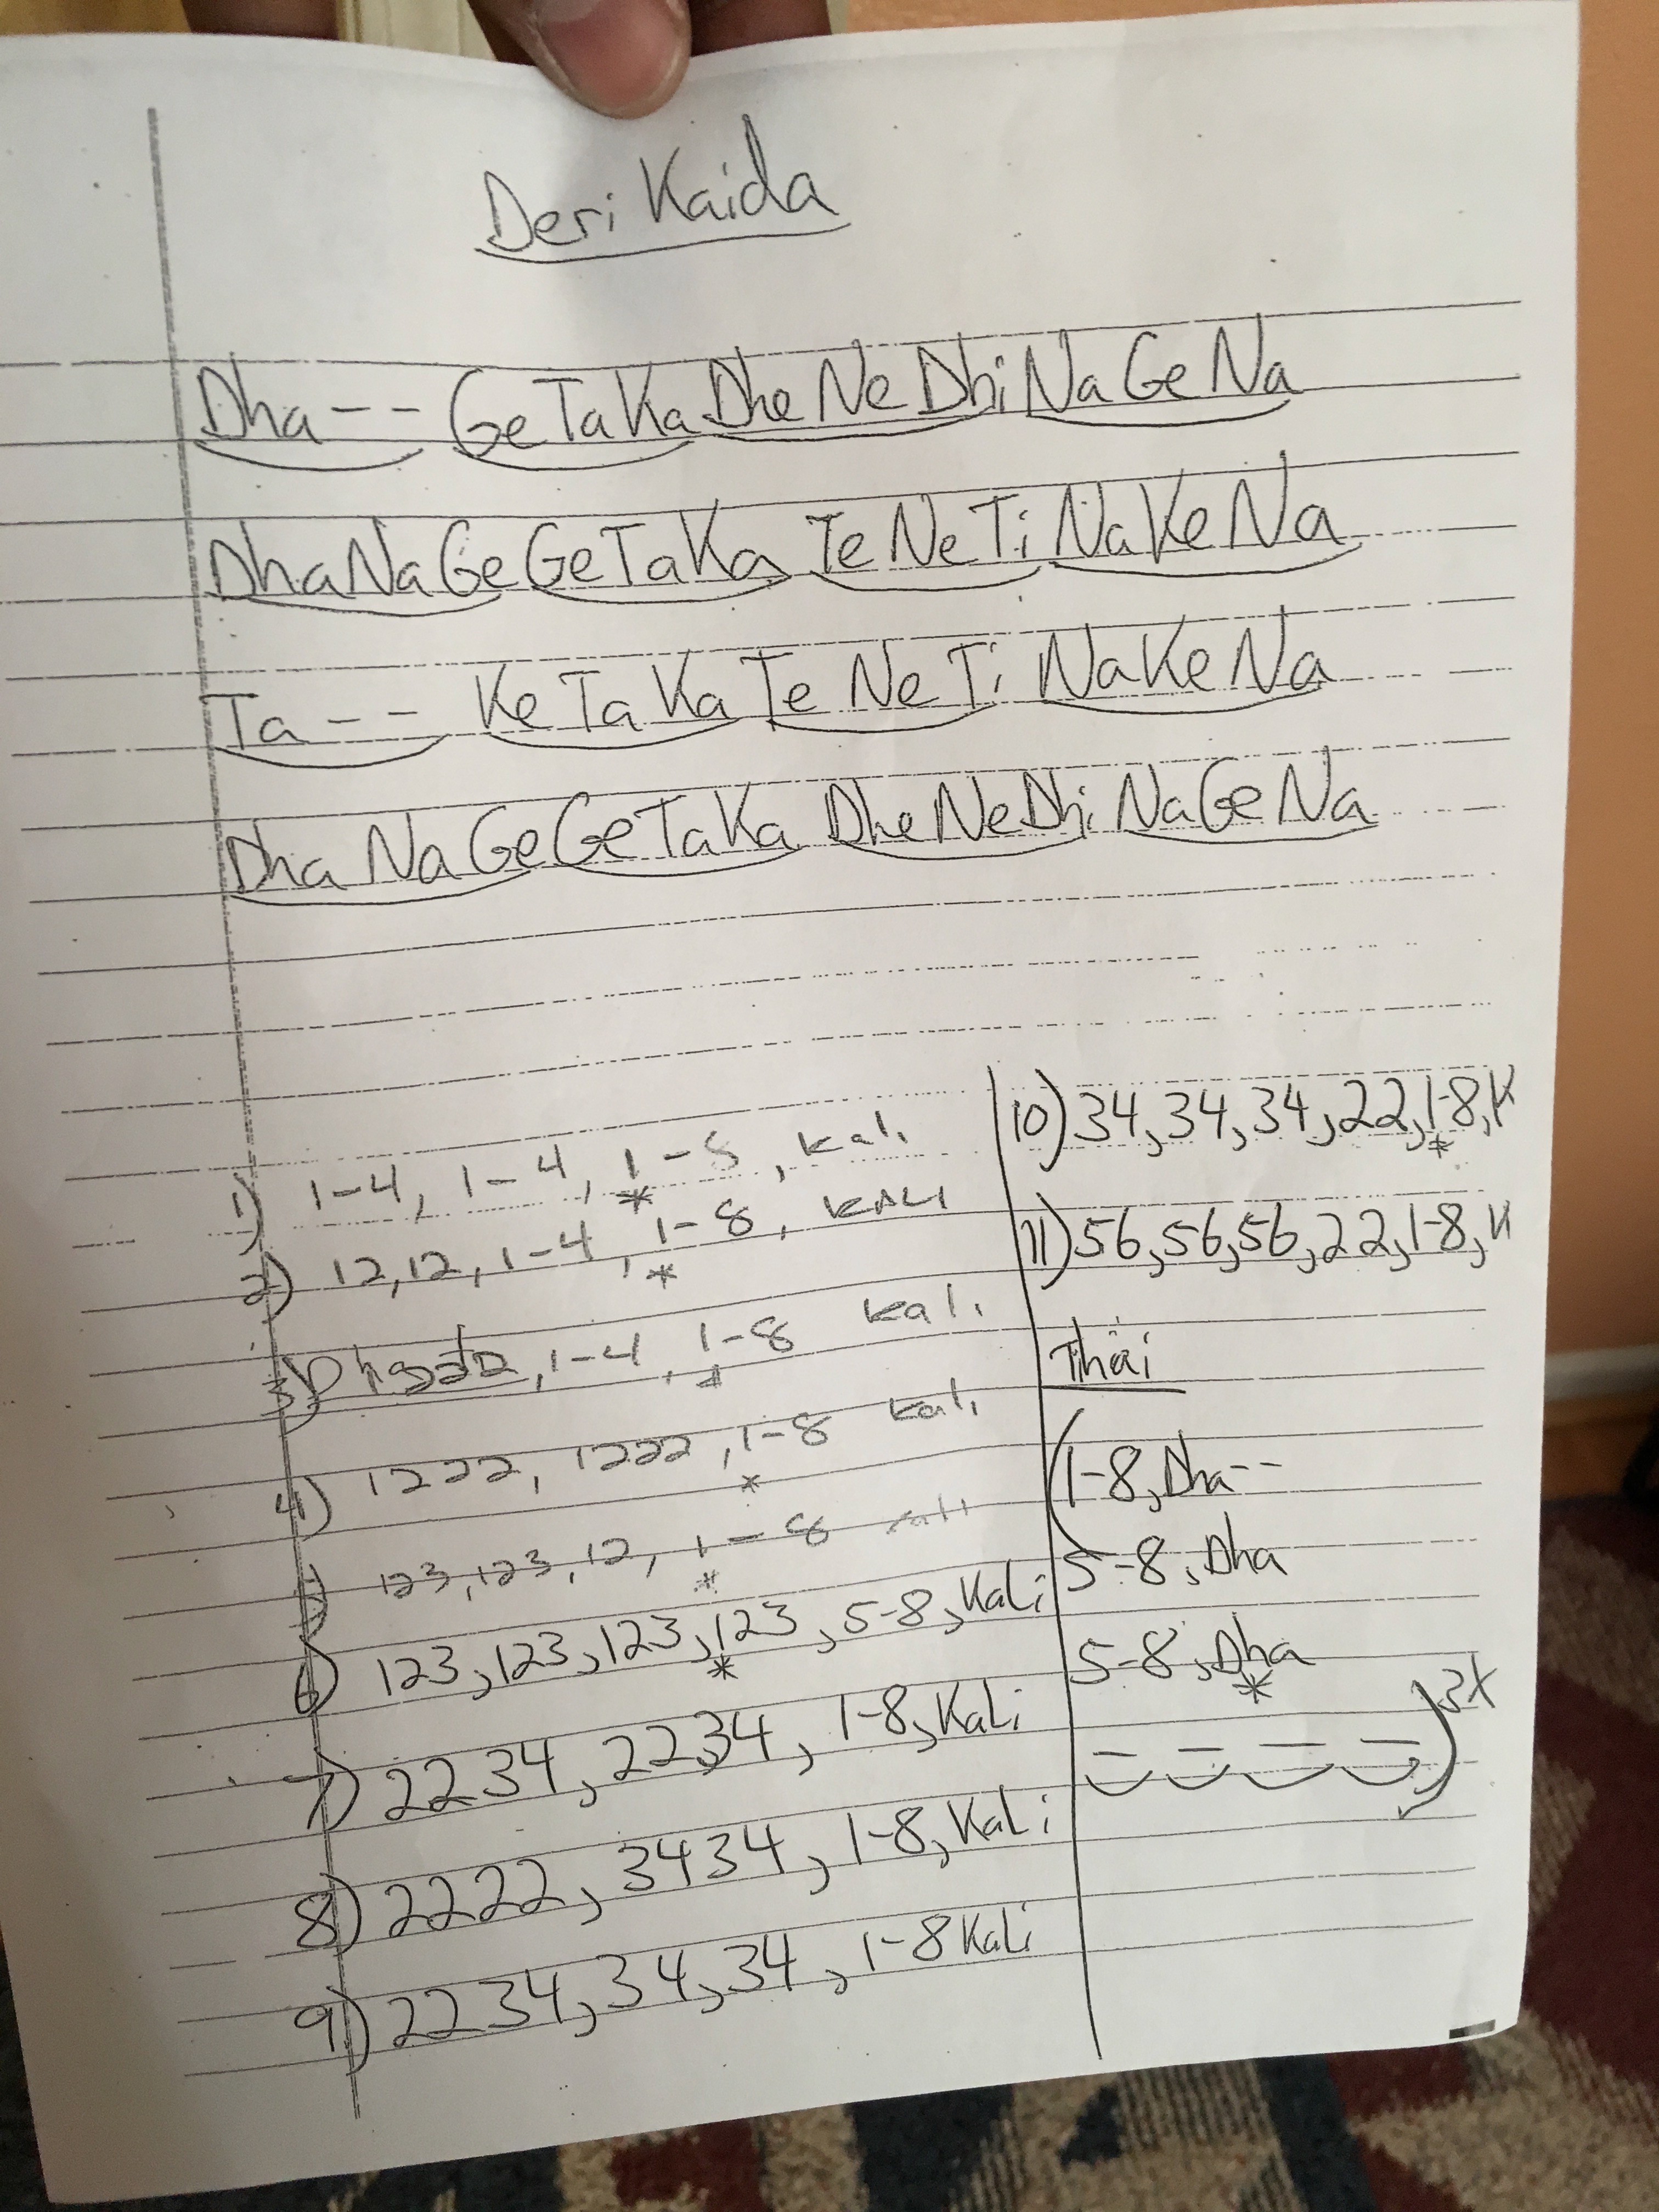 Deri Kaida
Dha-- GeTaKa DheNeDhi NaGeNa
DhaNaGe GeTaKa TeNeTi NaKeNa
Ta-- KeTaKa TeNeTi NaKeNa
DhaNaGe GeTaKa DheNeDhi NaGeNa
1) 1-4, 1-4, 1-8, kali
*
2) 12,12, 1-4, 1-8, KALI
*
3) 1-4, 1-8 kali
*
4) 1222, 1222, 1-8 kali
*
5) 123,123,12, 1-8 kali
*
6) 123,123,123,123,5-8,Kali
*
7) 2234,2234, 1-8,Kali
8) 2222, 3434, 1-8,Kali
9) 2234,34,34, 1-8 Kali
10) 34,34,34,22,1-8,K
*
11) 56,56,56,22,1-8,K
Thai
(1-8, Dha--
5-8, Dha
5-8, Dha
*
- - - -)3x